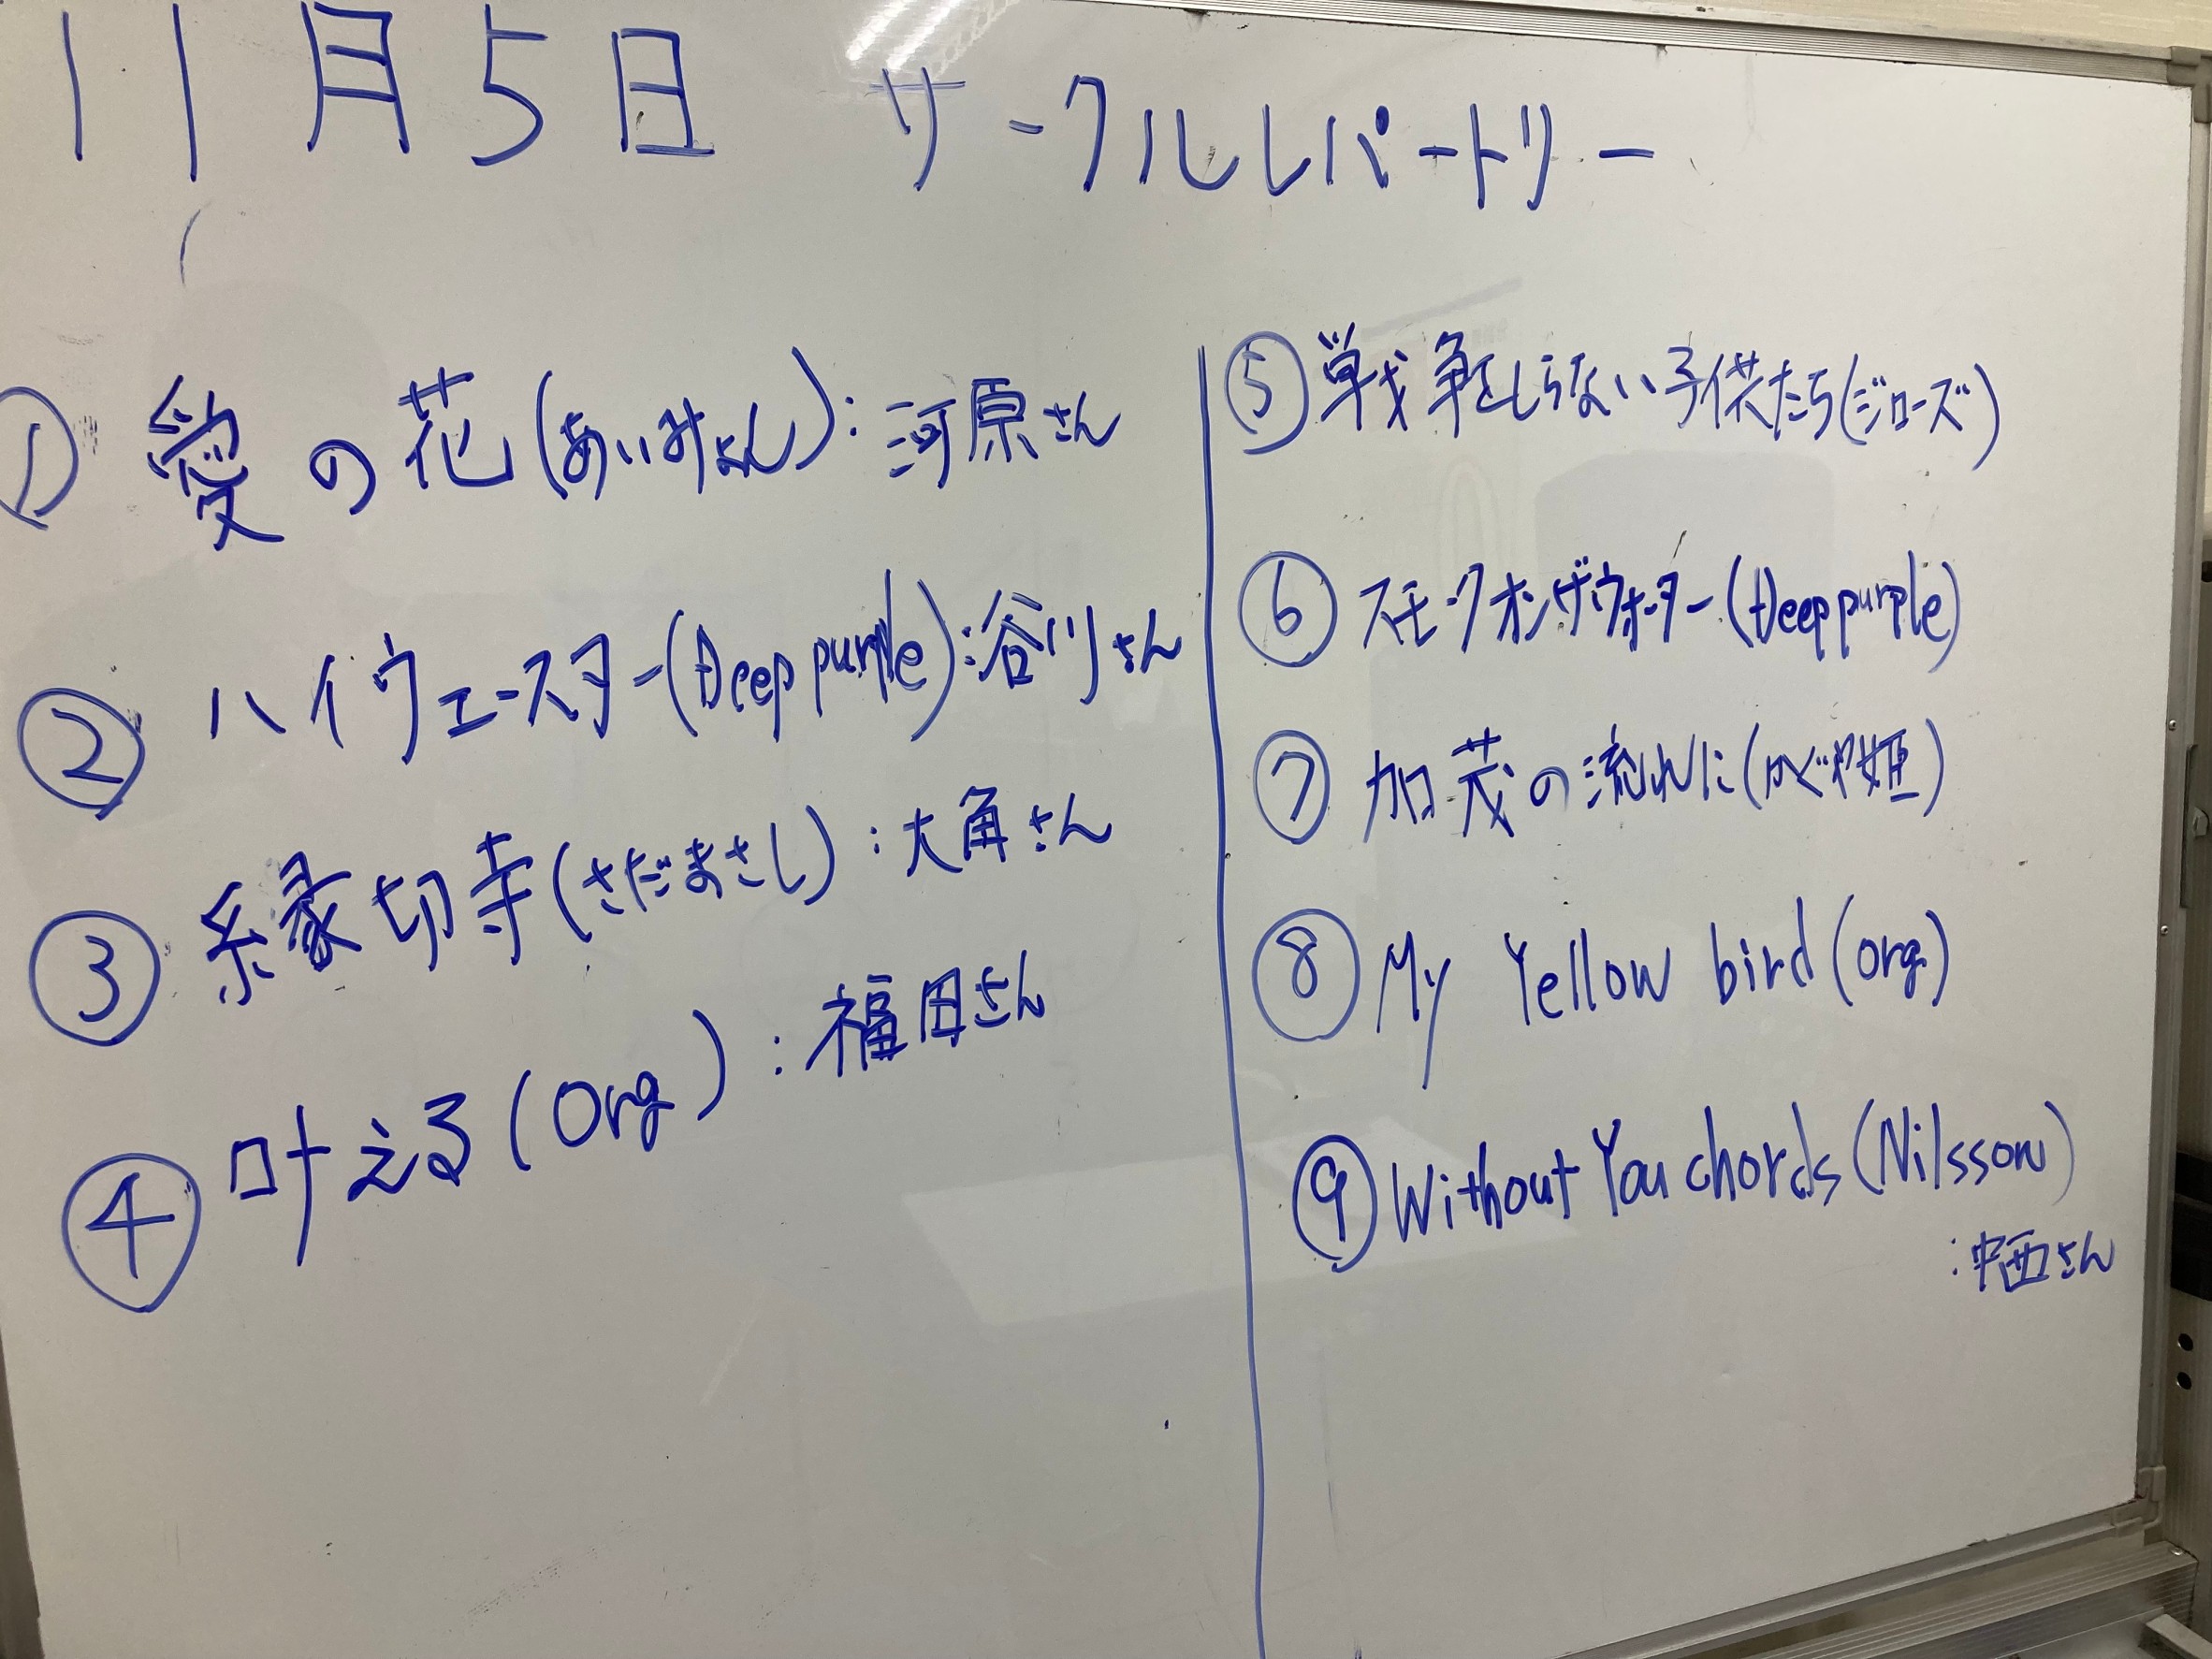 11月5日 サークルレパートリー
① 愛の花(あいみょん):河原さん
② ハイウェースター(Deep purple):谷川さん
③ 縁切寺(さだまさし):大角さん
④ 叶える(Org):福田さん
⑤ 戦争をしらない子供たち(ジローズ)
⑥ スモークオンザウォーター(Deep purple)
⑦ 加茂の流れに(かぐや姫)
⑧ My Yellow bird(org)
⑨ Without You chords(Nilsson)
:中西さん